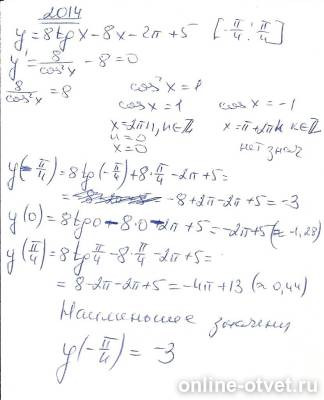 2014
y = 8tgx - 8x - 2π + 5   [-π/4; π/4]
y' = 8/cos²x - 8 = 0
8/cos²x = 8   cos²x = 1
cosx = 1   cosx = -1
x = 2πn, n∈Z   x = π + 2πk k∈Z
n = 0   нет знач
x = 0
y(-π/4) = 8tg(-π/4) + 8·π/4 - 2π + 5 =
= -8 + 2π - 2π + 5 = -3
y(0) = 8tg0 - 8·0 - 2π + 5 = -2π + 5 (≈ -1,28)
y(π/4) = 8tgπ/4 - 8·π/4 - 2π + 5 =
= 8 - 2π - 2π + 5 = -4π + 13 (≈ 0,44)
Наименьшее значение
y(-π/4) = -3
online-otvet.ru